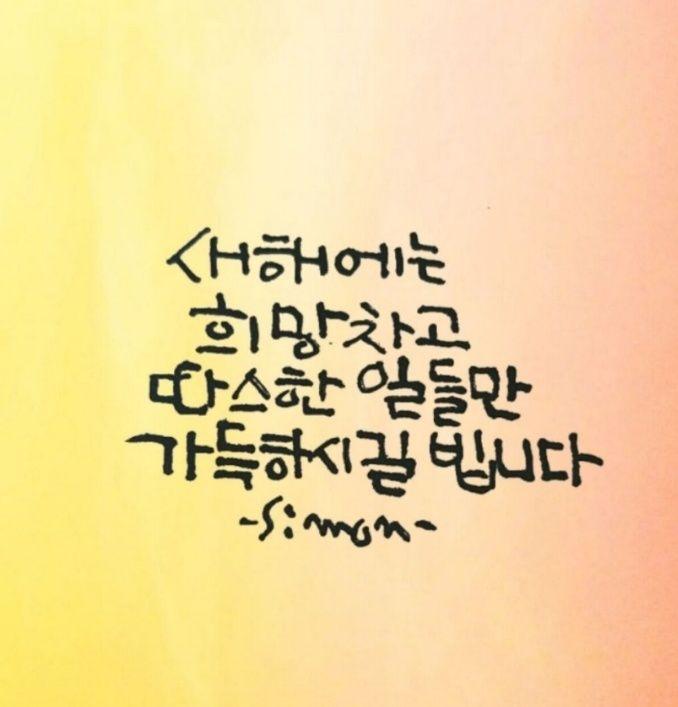 새해에는
희망차고
따스한 일들만
가득하시길 빕니다
-Simon-